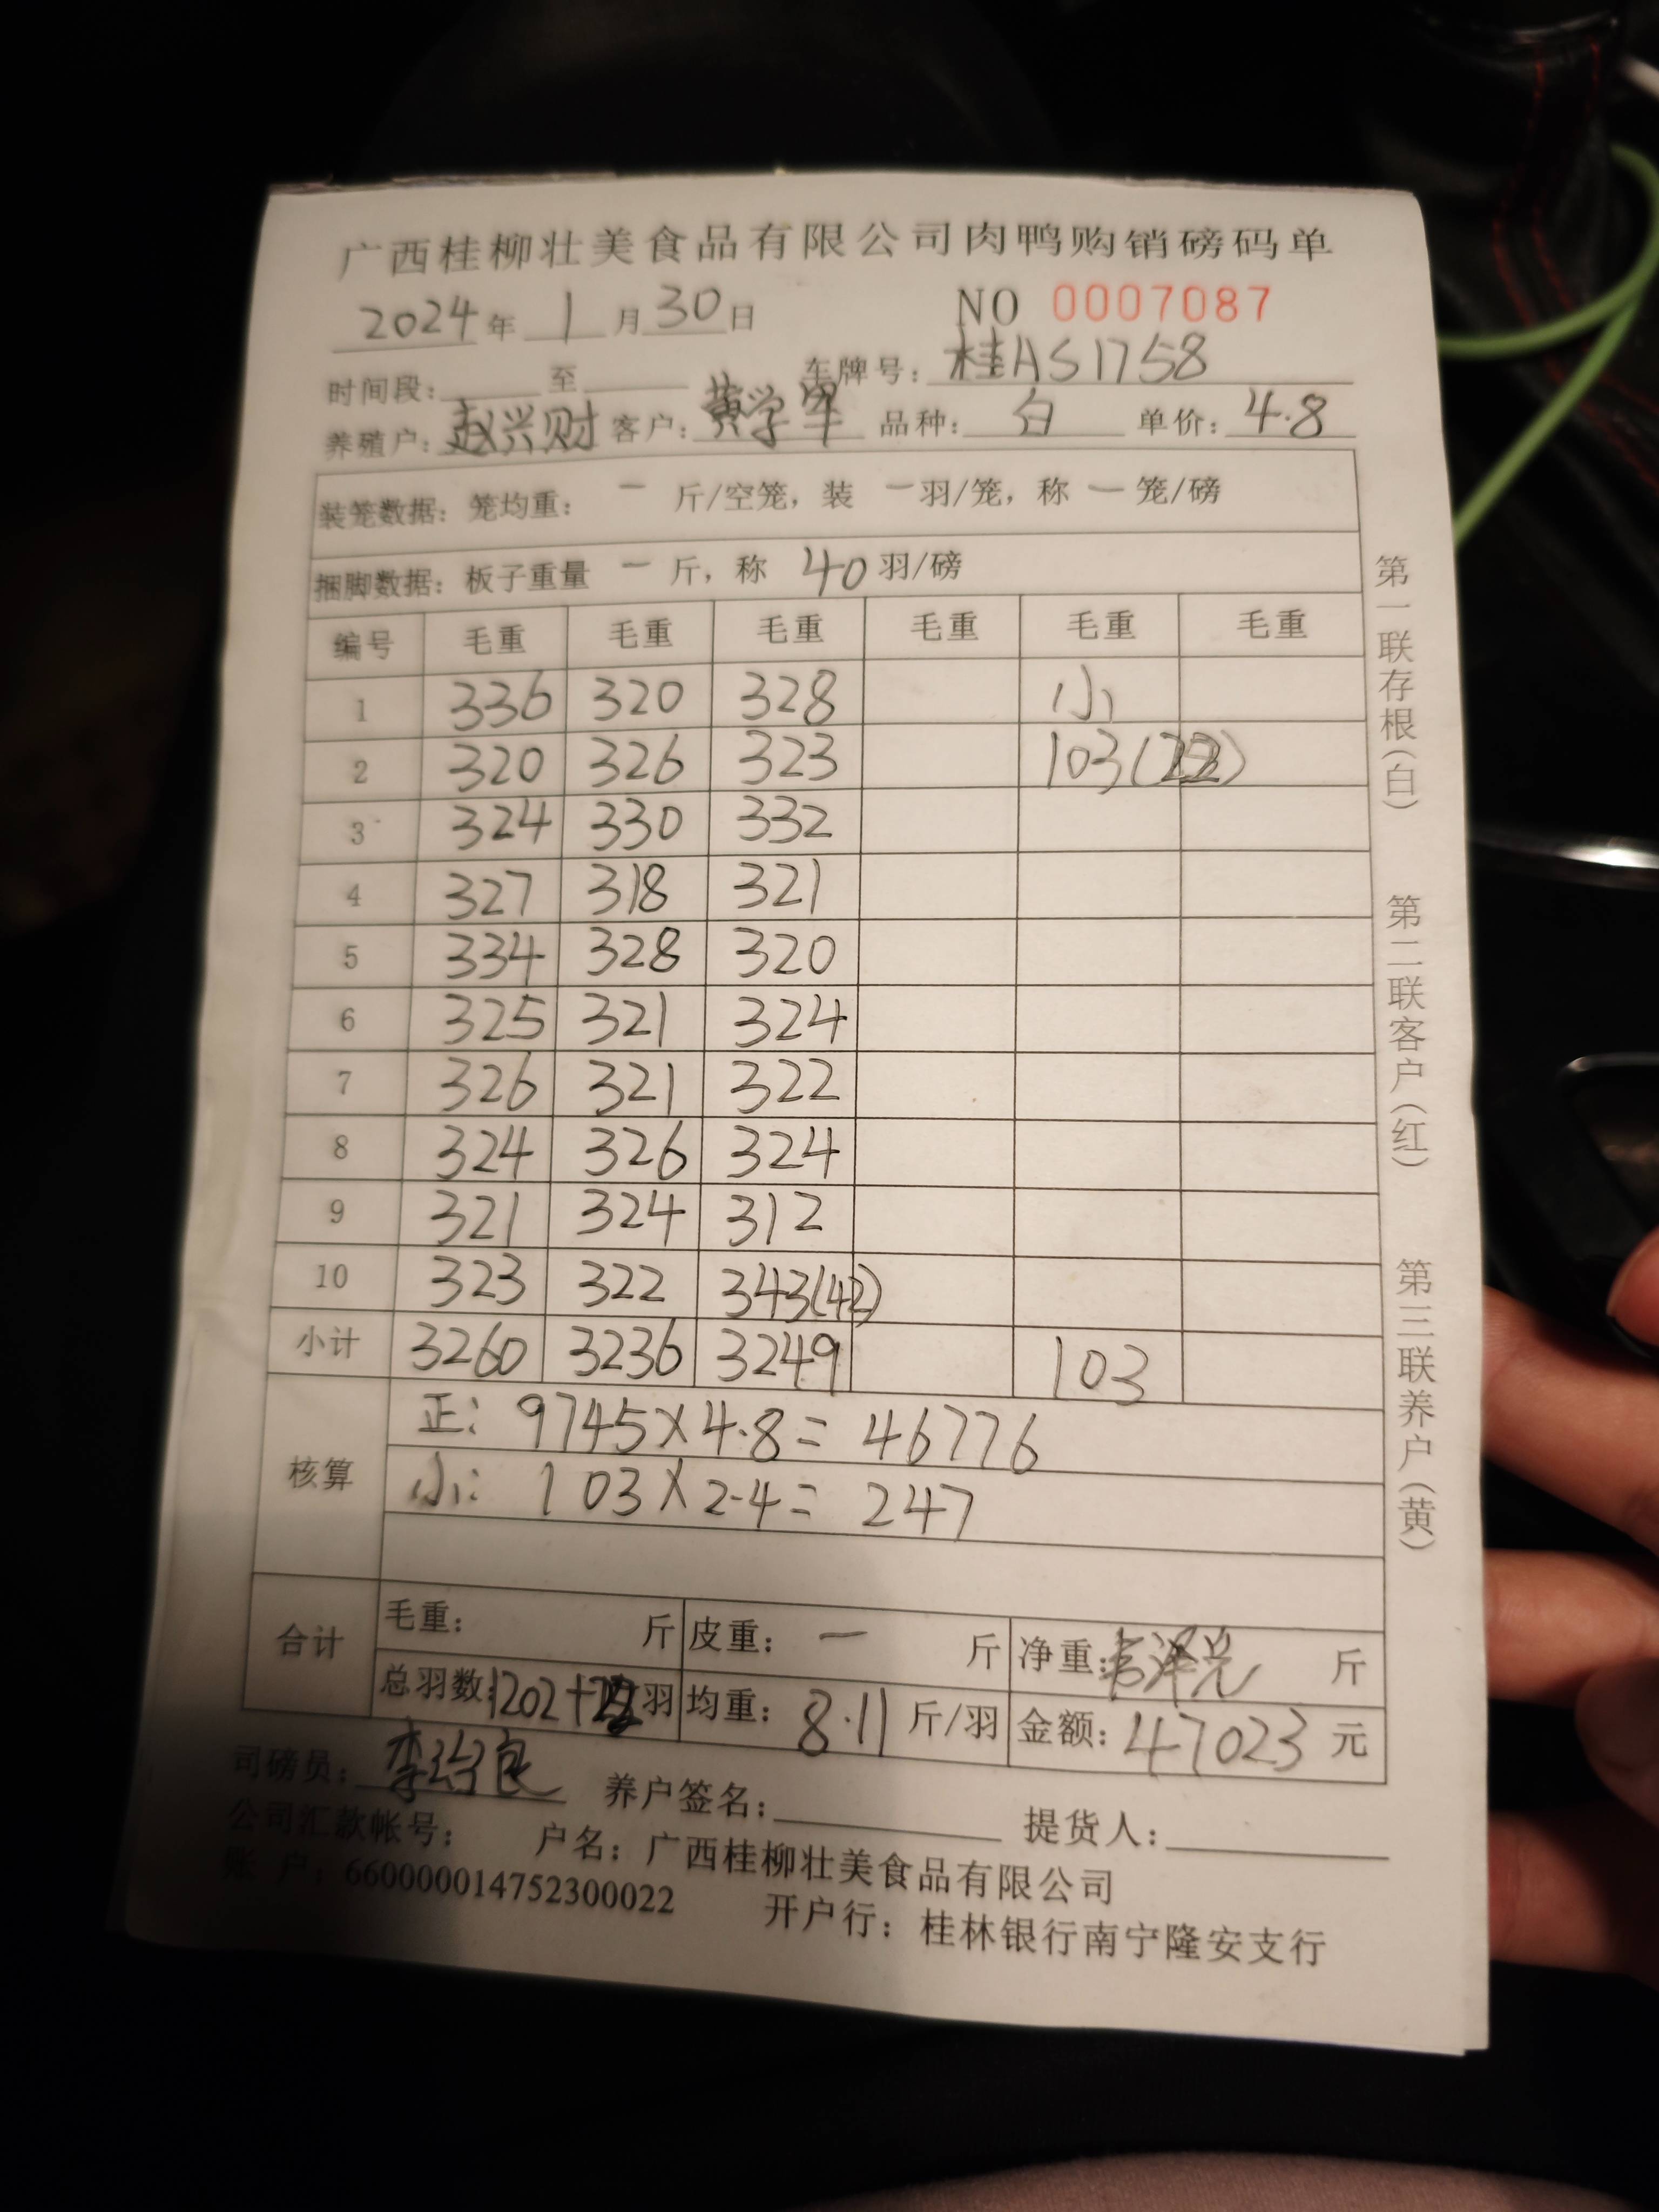 广西桂柳壮美食品有限公司肉鸭购销磅码单
2024年 1月30日 NO 0007087
时间段: 至 车牌号: 桂AS1758
养殖户: 赵兴财 客户: 黄学军 品种: 白 单价: 4.8
装笼数据: 笼均重: 一 斤/空笼, 装 一羽/笼, 称 一 笼/磅
捆脚数据: 板子重量 一 斤, 称 40羽/磅
编号 毛重 毛重 毛重 毛重 毛重 毛重
1 336 320 328 小
2 320 326 323 103(22)
3 324 330 332
4 327 318 321
5 334 328 320
6 325 321 324
7 326 321 322
8 324 326 324
9 321 324 312
10 323 322 343(42)
小计 3260 3236 3249 103
核算
正: 9745×4.8= 46776
小: 103×2.4= 247
合计
毛重: 斤 皮重: 一 斤 净重: 斤
总羽数: 1202+22羽 均重: 8.11 斤/羽 金额: 47023 元
司磅员: 养户签名: 提货人:
公司汇款帐号: 户名: 广西桂柳壮美食品有限公司
账 户: 660000014752300022 开户行: 桂林银行南宁隆安支行
第一联存根(白) 第二联客户(红) 第三联养户(黄)